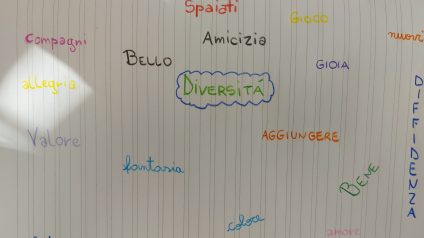 Spaiati
GIOCO
Compagni
Amicizia
nuovi
BELLO
GIOIA
allegria
DIVERSITÁ
DIFFIDENZA
Valore
AGGIUNGERE
fantasia
BENE
colore
amore